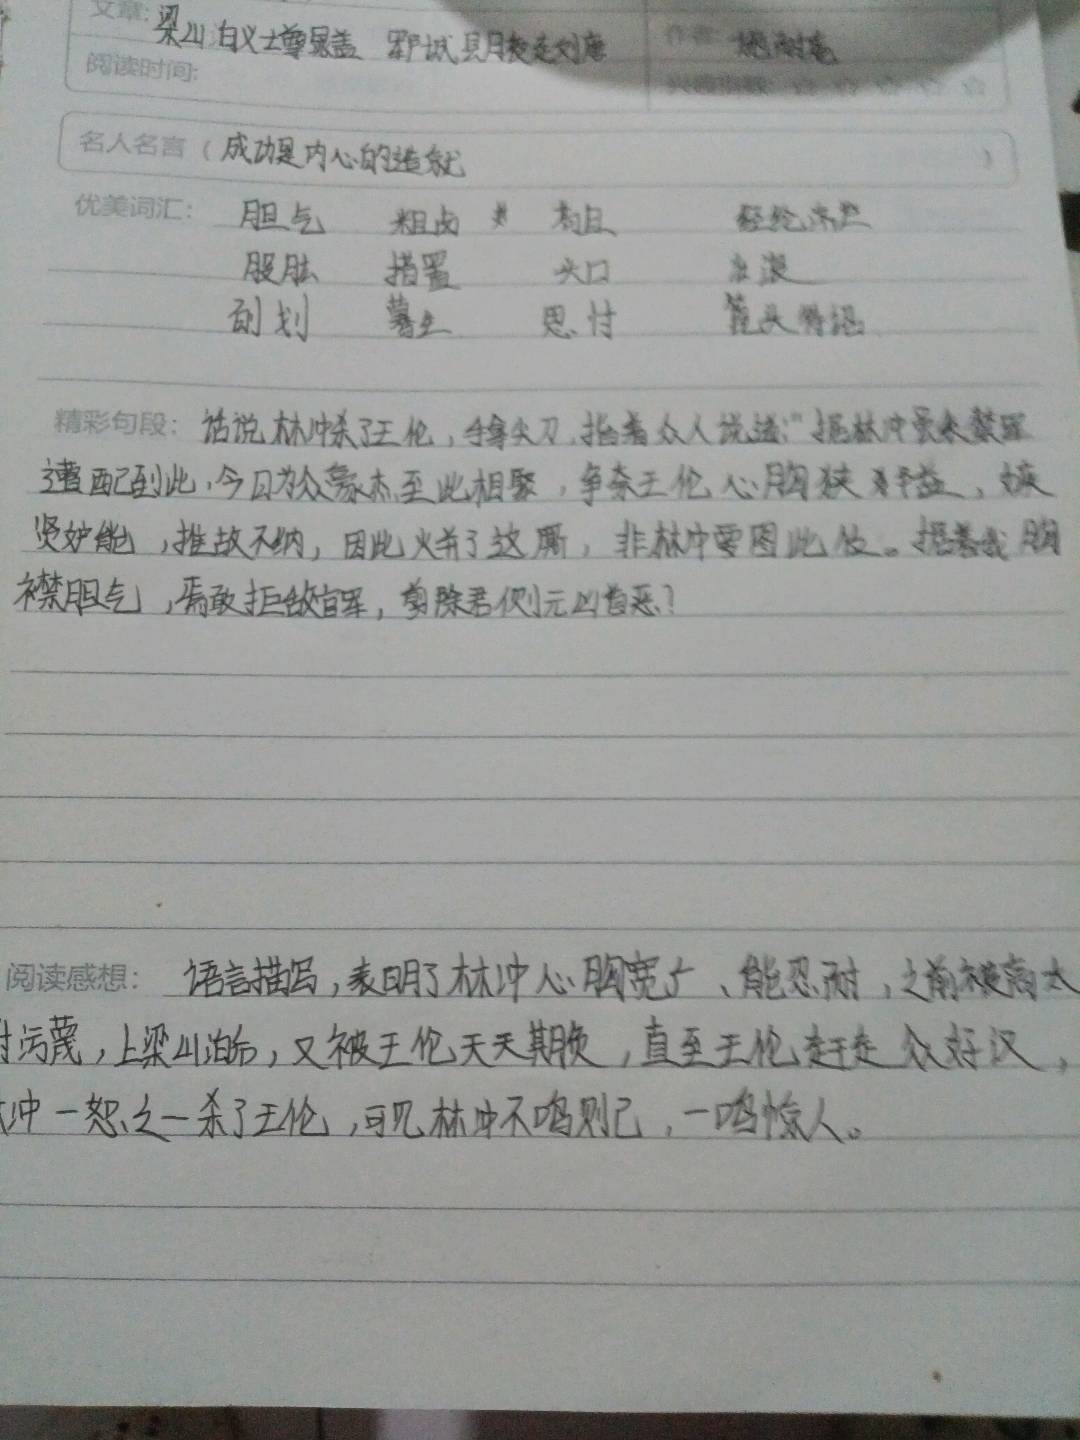 文章: 梁山泊义士尊晁盖 郓城县月夜走刘唐 作者: 施耐庵
阅读时间: 兴趣指数: ☆ ☆ ☆ ☆ ☆
名人名言（成功是内心的造就 ）
优美词汇: 胆气 粗卤 苟且 经纶济世
股肱 措置 火口
剖划 蓦生 思忖
精彩句段: 话说林冲杀了王伦，手拿尖刀，指着众人说道:"据林冲虽系禁军
遭配到此，今日为众豪杰至此相聚，争奈王伦心胸狭隘，嫉
贤妒能，推故不纳，因此火并了这厮，非林冲要图此位。据着我胸
襟胆气，焉敢拒敌官军，剪除君侧元凶首恶？
阅读感想: 语言描写，表明了林冲心胸宽广、能忍耐，之前被高太
尉污蔑，上梁山泊后，又被王伦天天期负，直至王伦赶走众好汉，
林冲一怒之一杀了王伦，可见林冲不鸣则已，一鸣惊人。